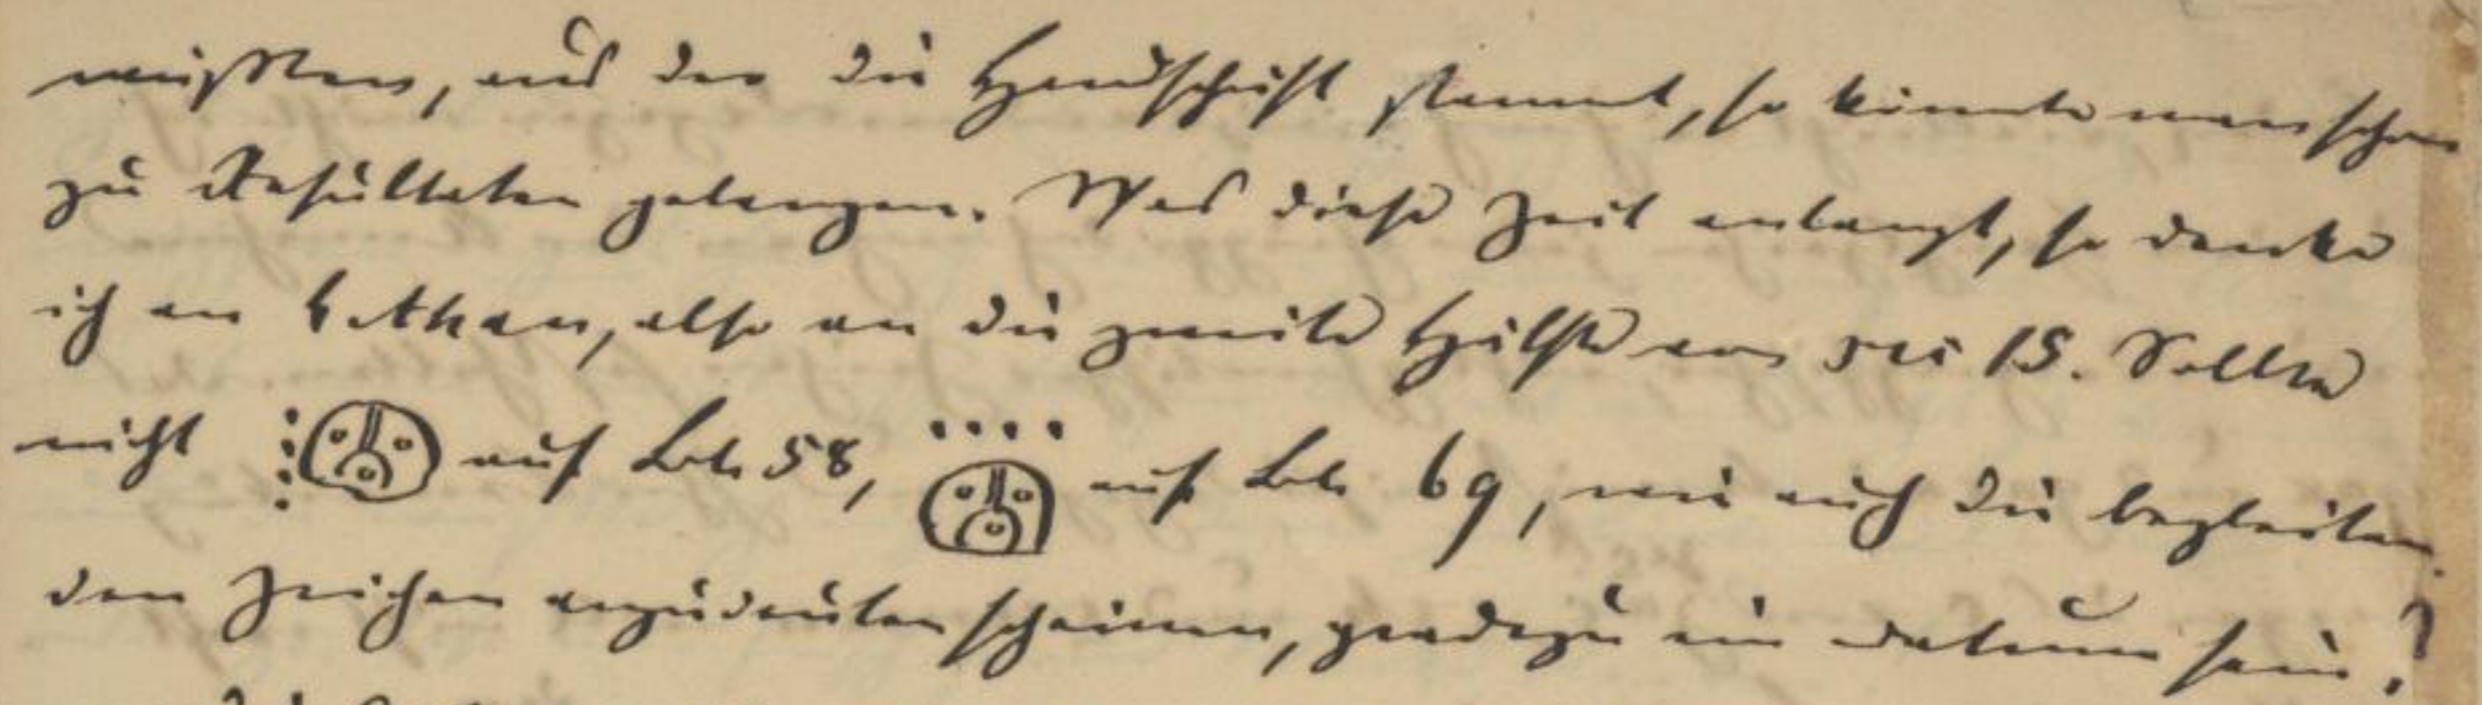 wüßten, aus der die Handschrift stammt, so könnte man schon
zu Resultaten gelangen. Was diese Zeit anlangt, so denke
ich an bakthan, also an die zweite Hälfte von 15. Sollte
nicht auf Bl. 58, auf Bl. 69, wie auch die begleiten
den Zeichen anzudeuten scheinen, geradezu ein datum sein?